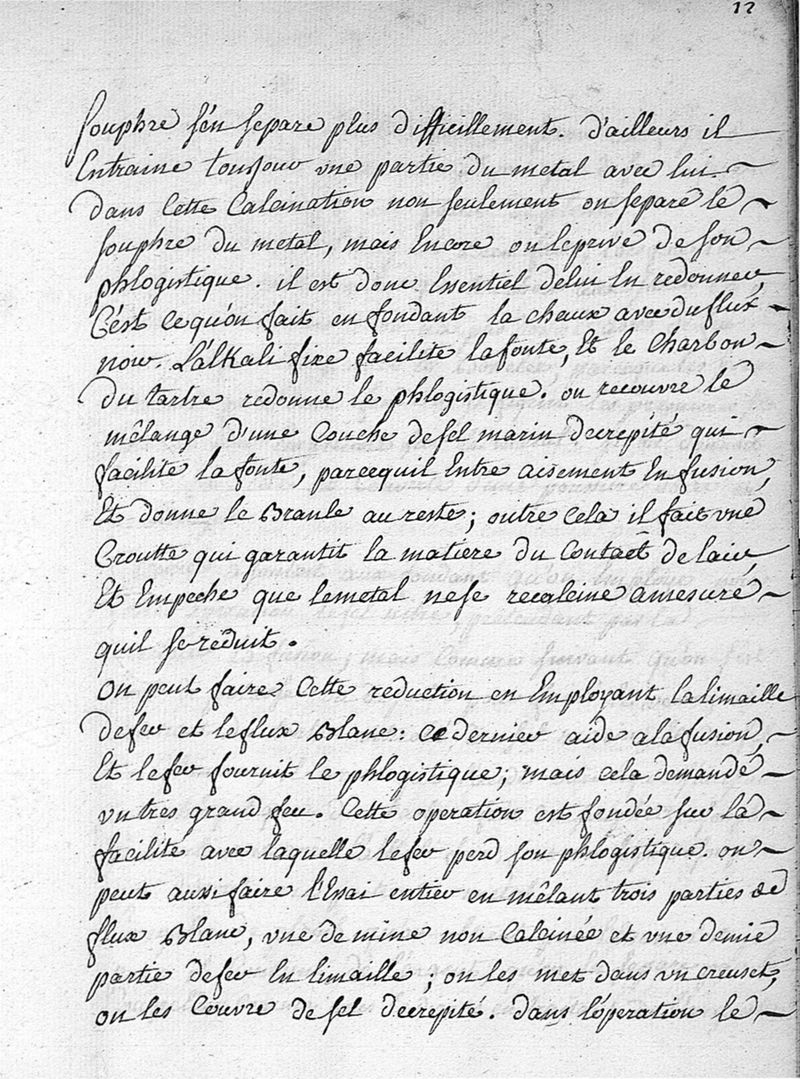 12
souphre s'en separe plus difficillement. d'ailleurs il
Entraine tousjour une partie du metal avec lui.
dans Cette Calcination non seulement on separe le
souphre du metal, mais Encore on le prive de son
phlogistique. il est donc Essentiel de lui En redonner,
C'est ce qu'on fait en fondant la chaux avec du flux
noir. L'alkali fixe facilite la fonte, Et le Charbon
du tartre redonne le phlogistique. on recouvre le
mêlange d'une Couche de sel marin decrepité qui
facilite la fonte, parcequil Entre aisement En fusion,
Et donne le Branle au reste; outre cela il fait une
Croutte qui garantit la matiere du Contact de lair
Et Empeche que le metal ne se recalcine amesure
quil se reduit.
On peut faire Cette reduction en Employant la limaille
de fer et le flux Blanc: ce dernier aide a la fusion,
Et le fer fournit le phlogistique; mais cela demande
un tres grand feu. Cette operation est fondée sur la
facilite avec laquelle le fer perd son phlogistique. on
peut aussi faire l'Essai entier en mêlant trois parties de
flux Blanc, une de mine non Calcinée et une demie
partie de fer En limaille; on les met dans un creuset,
on les Couvre de sel decrepité. dans l'operation le